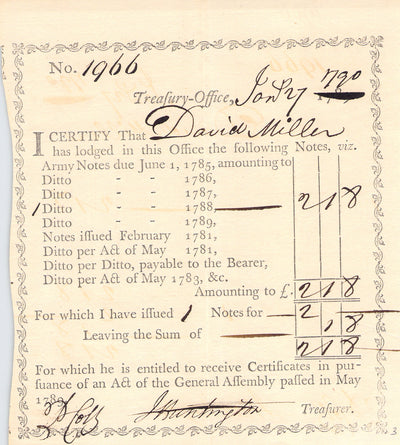 No. 1966
Treasury-Office, Jany 27 1790
I CERTIFY That David Miller
has lodged in this Office the following Notes, viz.
Army Notes due June 1, 1785, amounting to
Ditto - - 1786,
Ditto - - 1787,
1 Ditto - - 1788, 2 1 8
Ditto - - 1789,
Notes issued February 1781,
Ditto per Act of May 1781,
Ditto per Ditto, payable to the Bearer,
Ditto per Act of May 1783, &c.
Amounting to £. 2 1 8
For which I have issued 1 Notes for 2
Leaving the Sum of 1 8
2 1 8
For which he is entitled to receive Certificates in pur-
suance of an Act of the General Assembly passed in May
1789.
J Huntington Treasurer.